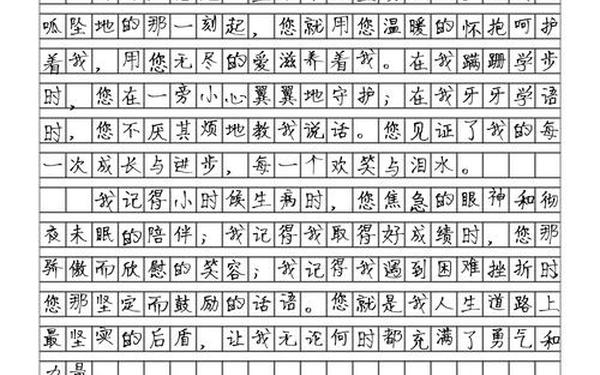 呱坠地的那一刻起，您就用您温暖的怀抱呵护
着我，用您无尽的爱滋养着我。在我蹒跚学步
时，您在一旁小心翼翼地守护；在我牙牙学语
时，您不厌其烦地教我说话。您见证了我的每
一次成长与进步，每一个欢笑与泪水。
我记得小时候生病时，您焦急的眼神和彻
夜未眠的陪伴；我记得我取得好成绩时，您那
骄傲而欣慰的笑容；我记得我遇到困难挫折时
您那坚定而鼓励的话语。您就是我人生道路上
最坚实的后盾，让我无论何时都充满了勇气和